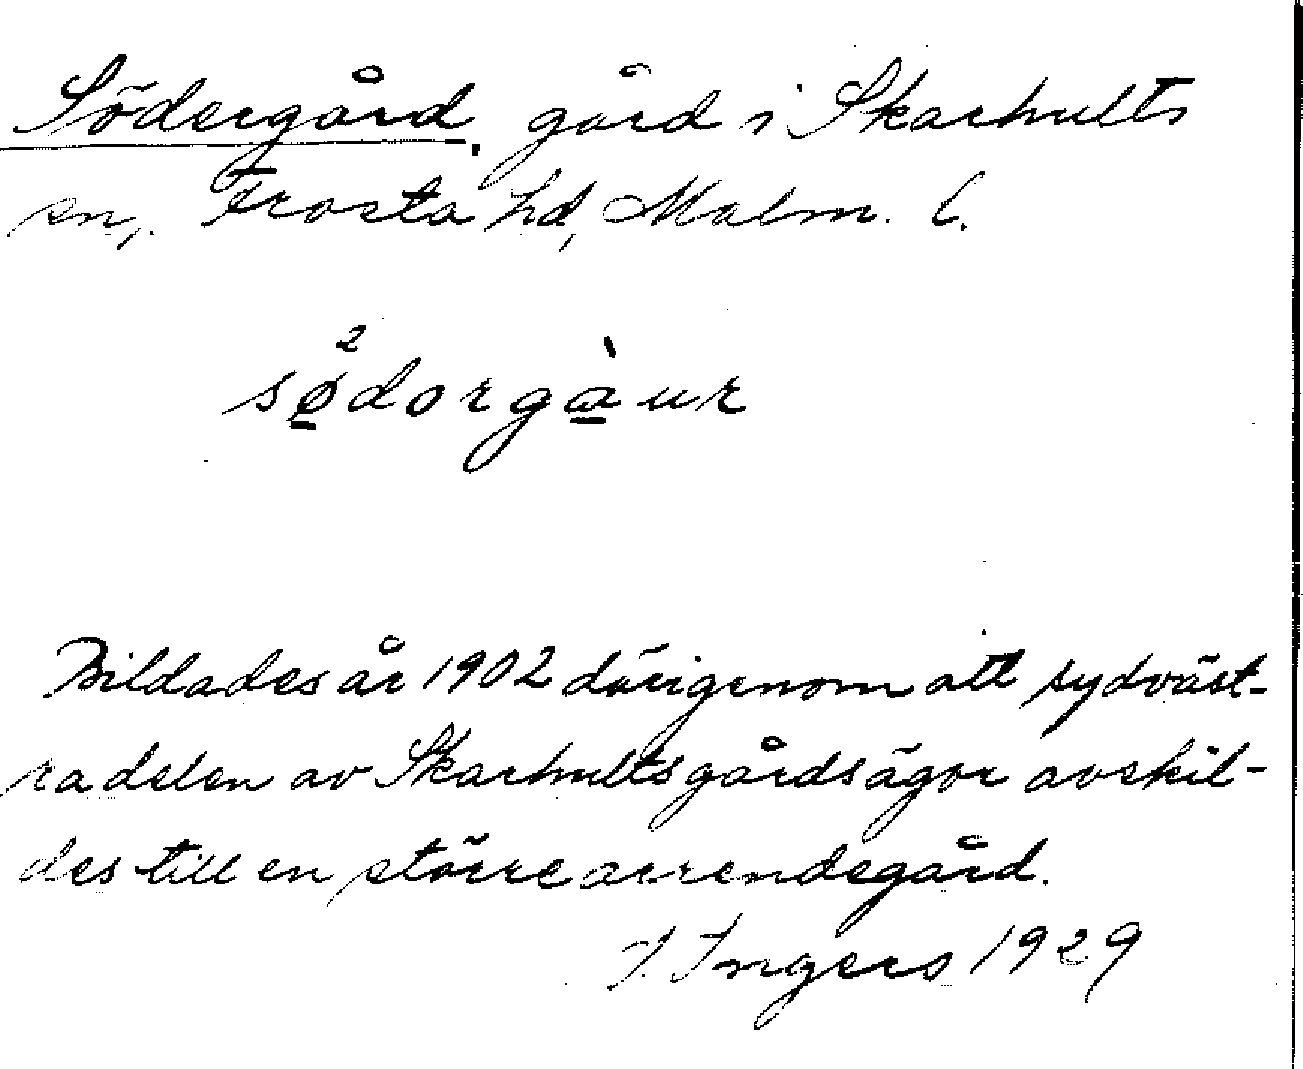 Södergård, gård i Skarhults
sn, Frosta hd, Malm. l.
sø̲²dorgà̲ur
Bildades år 1902 därigenom att sydväst-
ra delen av Skarhultsgårds ägor avskil-
des till en större arrendegård.
I. Ingers 1929